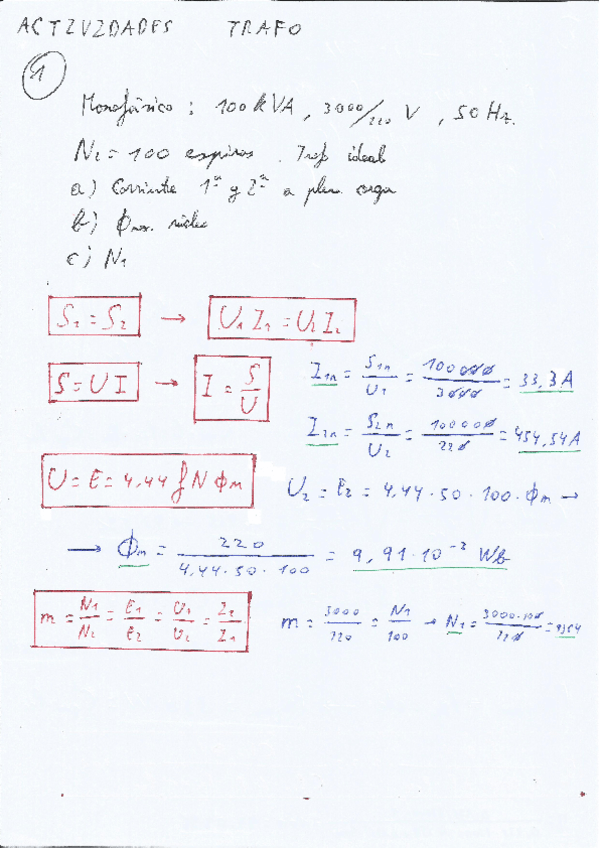 ACTIVIDADES TRAFO
1
Monofásico: 100kVA, 3000/220 V, 50Hz.
N2 = 100 espiras. Traf ideal
a) Corriente 1ª y 2ª a plena carga
b) Φmax. núcleo
c) N1
S1 = S2 → U1 I1 = U2 I2
S = U I → I = S/U
I1n = S1n/U1 = 100000/3000 = 33,3A
I2n = S2n/U2 = 100000/220 = 454,54A
U = E = 4,44 f N Φm
U2 = E2 = 4,44·50·100·Φm →
→ Φm = 220/4,44·50·100 = 9,91·10⁻³ Wb
m = N1/N2 = E1/E2 = U1/U2 = I2/I1
m = 3000/220 = N1/100 → N1 = 3000·100/220 =